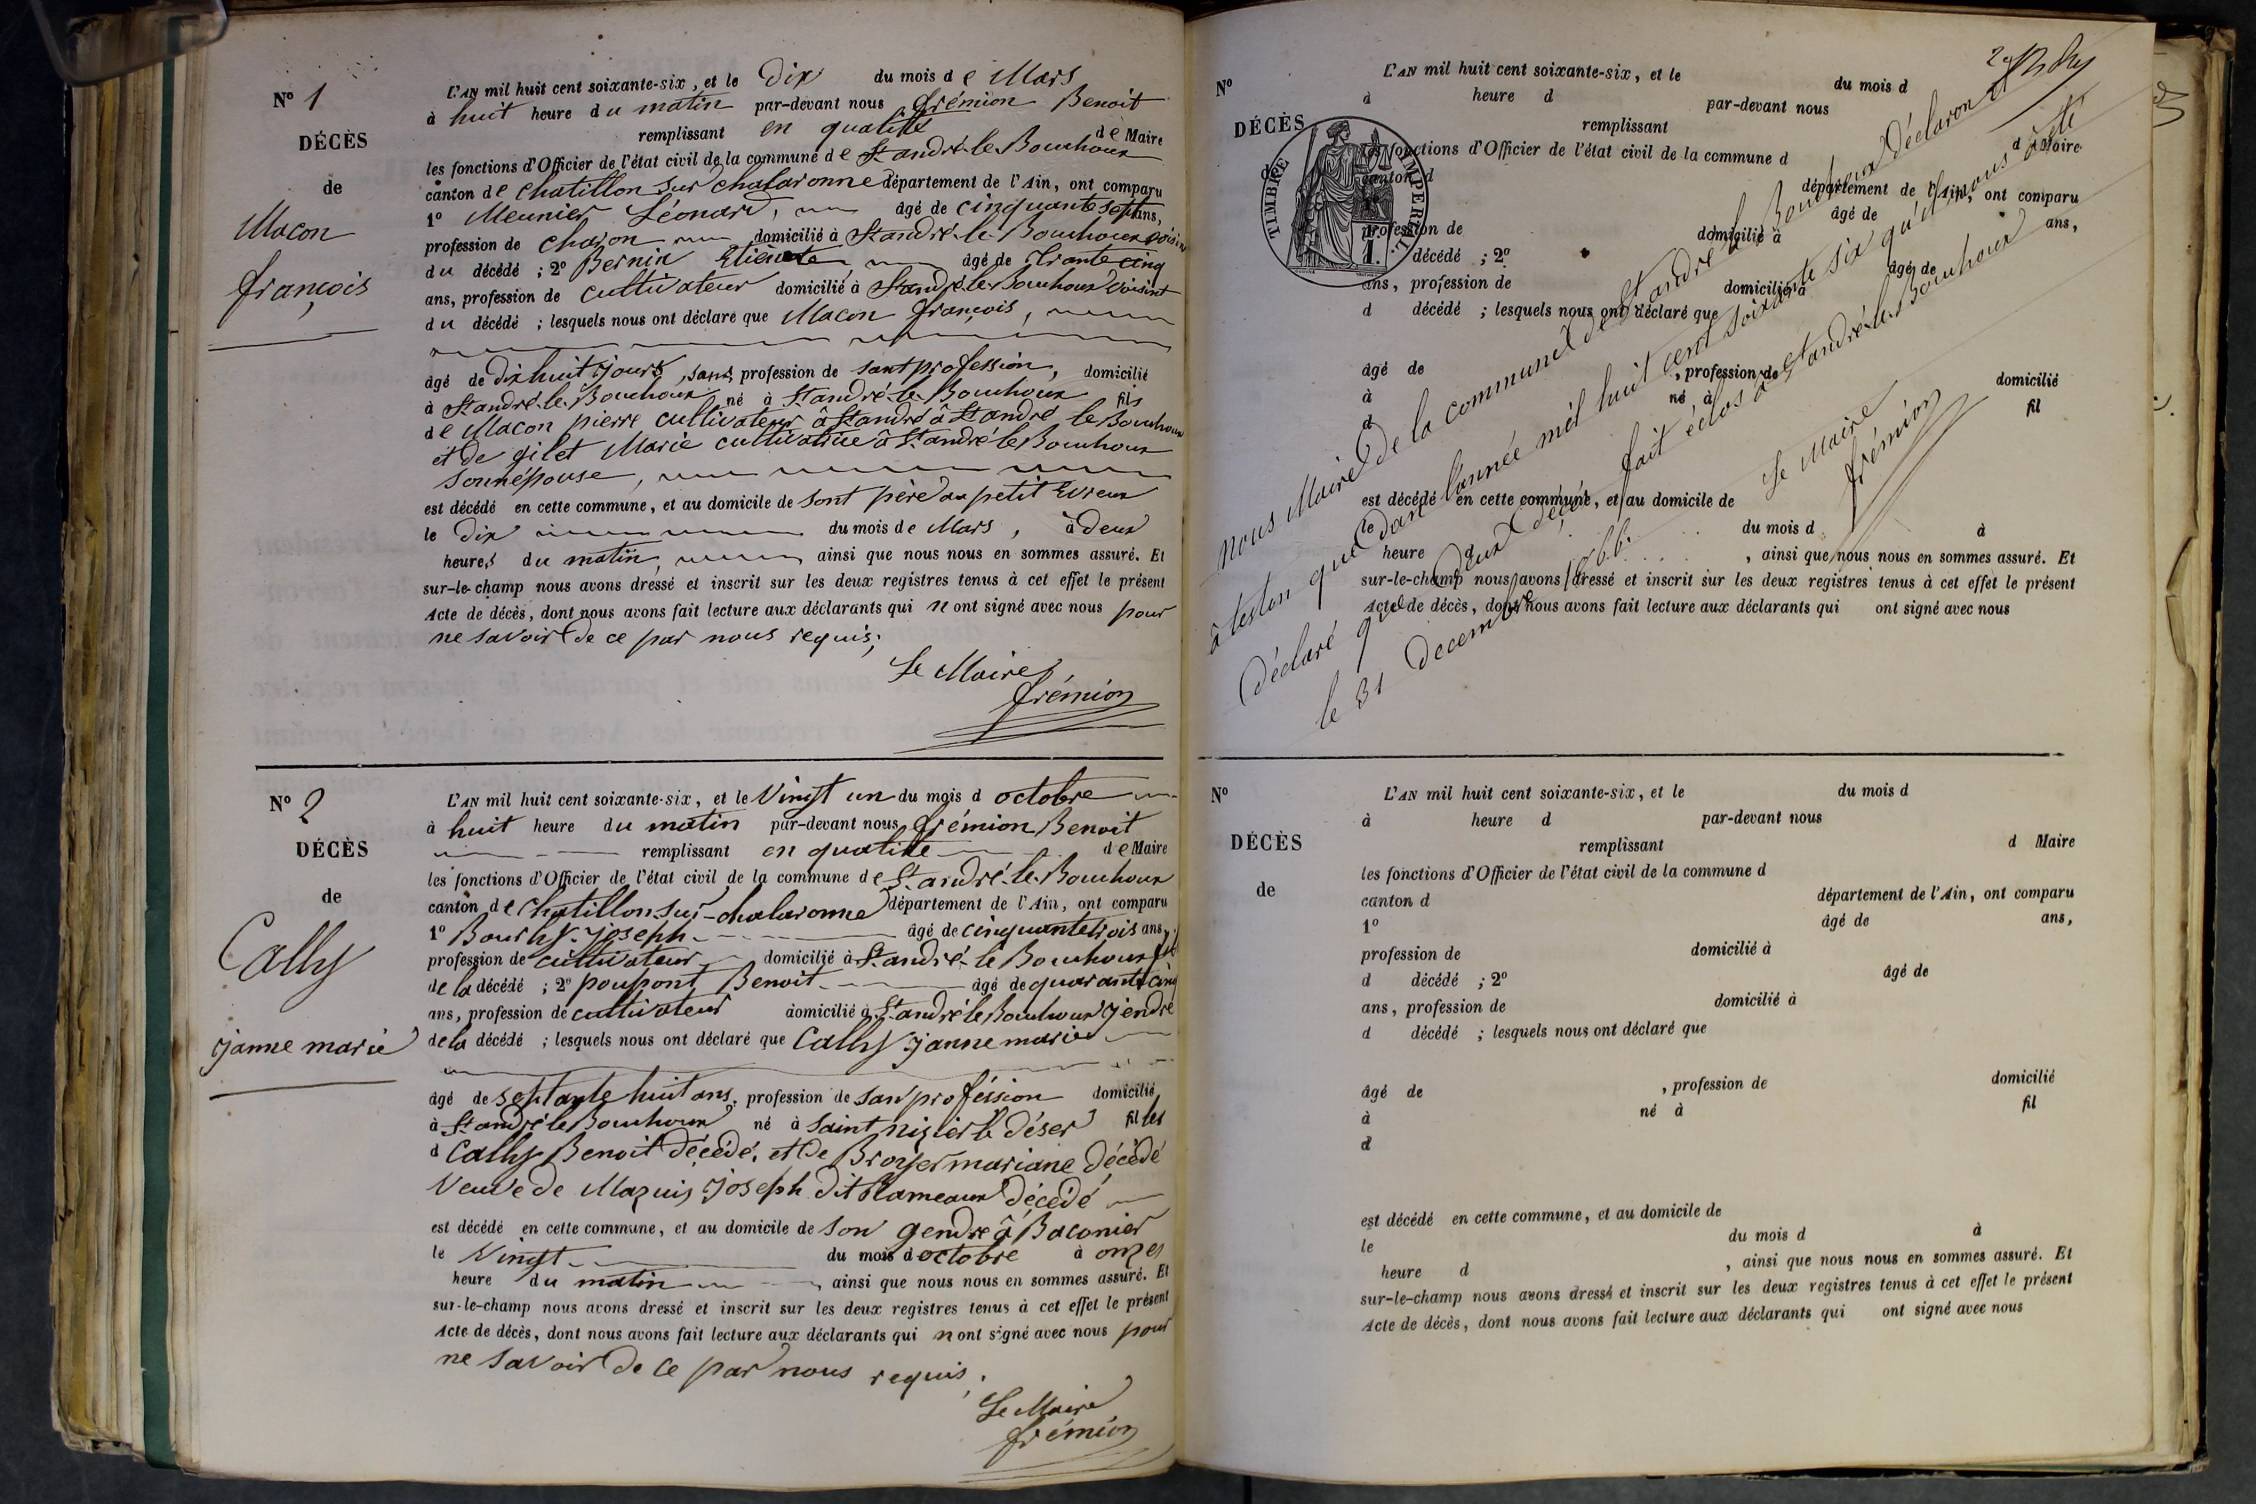 N° 1
DÉCÈS
de
Macon
françois
L'AN mil huit cent soixante-six, et le Dix du mois de Mars
à huit heure du matin par-devant nous frémion Benoit
remplissant en qualité de Maire
les fonctions d'Officier de l'état civil de la commune de St andré-le-Bouchoux
canton de chatillon sur chalaronne département de l'Ain, ont comparu
1° Meunier Léonard, âgé de cinquante sept ans,
profession de charon domicilié à St andré-le-Bouchoux voisin
du décédé ; 2° Bernin Etienne âgé de trante cinq
ans, profession de cultivateur domicilié à St andré-le-Bouchoux voisint
du décédé ; lesquels nous ont déclaré que Macon françois,
âgé de dix huit jours, sans profession de sant profession, domicilié
à St andré-le-Bouchoux né à St andré-le-Bouchoux fils
de Macon pierre cultivateur à St andré à St andré le Bouchoux
et de gilet Marie cultivatrice à St andré le Bouchoux
sonnépouse,
est décédé en cette commune, et au domicile de sont père au petit Evreux
le Dix du mois de Mars, à Deux
heures du matin, ainsi que nous nous en sommes assuré. Et
sur-le-champ nous avons dressé et inscrit sur les deux registres tenus à cet effet le présent
Acte de décès, dont nous avons fait lecture aux déclarants qui n ont signé avec nous pour
ne savoir de ce par nous requis;
Le Maire
frémion
N° 2
DÉCÈS
de
Cally
janne marie
L'AN mil huit cent soixante-six, et le Vingt un du mois d octobre
à huit heure du matin par-devant nous frémion Benoit
remplissant en qualité de Maire
les fonctions d'Officier de l'état civil de la commune de St andré-le-Bouchoux
canton de chatillon-sur-chalaronne département de l'Ain, ont comparu
1° Bourhy joseph âgé de cinquante trois ans,
profession de cultivateur domicilié à St andré-le Bouchoux
de la décédé ; 2° poupont Benoit âgé de quarante cinq
ans, profession de cultivateur domicilié à St andré le Bouchoux jendre
de la décédé ; lesquels nous ont déclaré que Cally janne marie
âgé de septante huit ans, profession de san proféssion domicilié
à St andré le Bouchoux né à Saint nizier le déser fille
d Cally Benoit décédé, et de Broyer mariane décédé
Veuve de Mazuis joseph dit Rameaux décédé
est décédé en cette commune, et au domicile de son gendre à Baconier
le Vingt du mois d octobre à onze
heure du matin, ainsi que nous nous en sommes assuré. Et
sur-le-champ nous avons dressé et inscrit sur les deux registres tenus à cet effet le présent
Acte de décès, dont nous avons fait lecture aux déclarants qui n ont signé avec nous pour
ne savoir de ce par nous requis.
Le Maire
frémion
N°
DÉCÈS
d
TIMBRE IMPERIAL.
1.
L'AN mil huit cent soixante-six, et le du mois d
à heure d par-devant nous
remplissant d Maire
les fonctions d'Officier de l'état civil de la commune d
canton d département de l'Ain, ont comparu
âgé de ans,
profession de domicilié à
décédé ; 2° âgé de
ans, profession de domicilié à
d décédé ; lesquels nous ont déclaré que
âgé de , profession de domicilié
à né à fil
d
est décédé en cette commune, et au domicile de
le du mois d à
heure d , ainsi que nous nous en sommes assuré. Et
sur-le-champ nous avons dressé et inscrit sur les deux registres tenus à cet effet le présent
Acte de décès, dont nous avons fait lecture aux déclarants qui ont signé avec nous
nous Maire de la commune de St andré le Bouchoux déclaron et
à teston que dan l'année mil huit cent soixante six qu'il nous à été
déclaré que deux décé. fait éclos à St andré-le-Bouchoux
le 31 decembre 1866.
le Maire
frémion
N°
DÉCÈS
de
L'AN mil huit cent soixante-six, et le du mois d
à heure d par-devant nous
remplissant d Maire
les fonctions d'Officier de l'état civil de la commune d
canton d département de l'Ain, ont comparu
1° âgé de ans,
profession de domicilié à
d décédé ; 2° âgé de
ans, profession de domicilié à
d décédé ; lesquels nous ont déclaré que
âgé de , profession de domicilié
à né à fil
d
est décédé en cette commune, et au domicile de
le du mois d à
heure d , ainsi que nous nous en sommes assuré. Et
sur-le-champ nous avons dressé et inscrit sur les deux registres tenus à cet effet le présent
Acte de décès, dont nous avons fait lecture aux déclarants qui ont signé avec nous